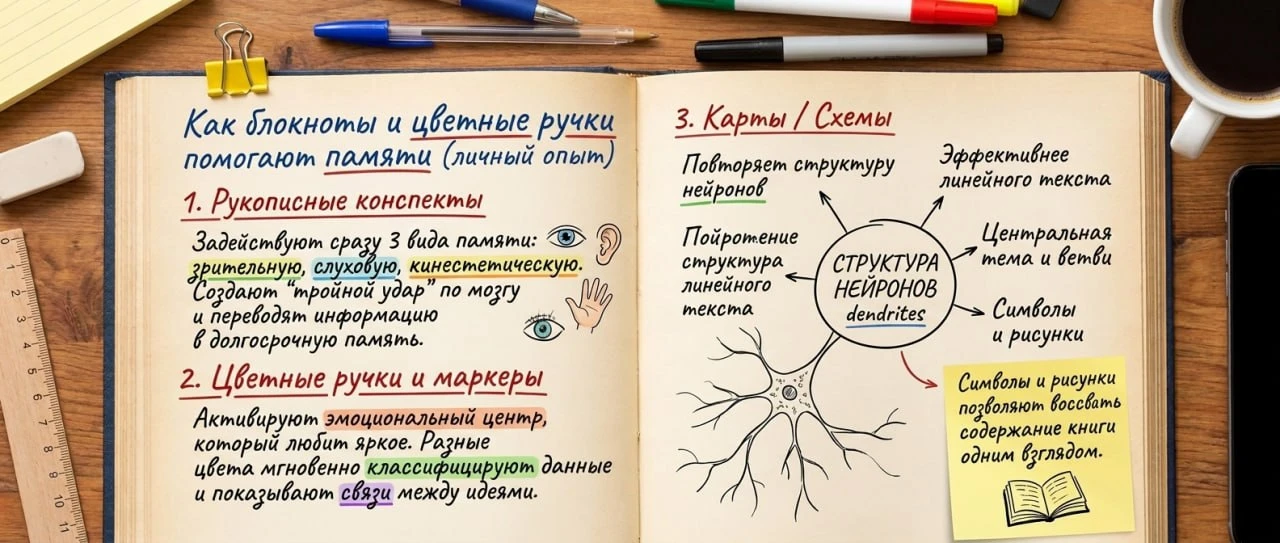 Как блокноты и цветные ручки
помогают памяти (личный опыт)
1. Рукописные конспекты
Задействуют сразу 3 вида памяти:
зрительную, слуховую, кинестетическую.
Создают "тройной удар" по мозгу
и переводят информацию
в долгосрочную память.
2. Цветные ручки и маркеры
Активируют эмоциональный центр,
который любит яркое. Разные
цвета мгновенно классифицируют данные
и показывают связи между идеями.
3. Карты / Схемы
Повторяет структуру
нейронов
Эффективнее
линейного текста
структура
линейного
текста
СТРУКТУРА
НЕЙРОНОВ
dendrites
Центральная
тема и ветви
Символы
и рисунки
Символы и рисунки
позволяют воссвать
содержание книги
одним взглядом.
0
1
2
3
4
5
6
7
8
9
10
11